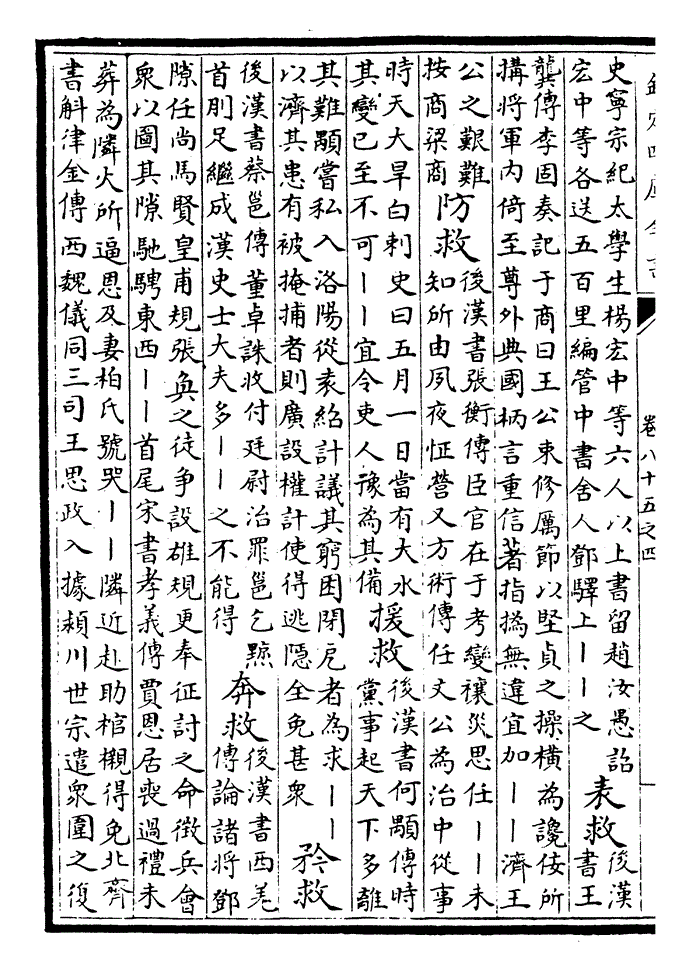 欽定四庫全書
卷八十五之四
史寧宗紀太學生楊宏中等六人以上書留趙汝愚詔
宏中等各送五百里編管中書舍人鄧驛上丨丨之
表救
後漢
書王
龔傳李固奏記于商曰王公束修厲節以堅貞之操橫為讒佞所
搆將軍內倚至尊外典國柄言重信著指撝無違宜加丨丨濟王
公之艱難
按商梁商
防救
後漢書張衡傳臣官在于考變禳災思任丨丨未
知所由夙夜怔營又方術傳任文公為治中從事
時天大旱白刺史曰五月一日當有大水
其變已至不可丨丨宜令吏人豫為其備
援救
後漢書何顒傳時
黨事起天下多離
其難顒嘗私入洛陽從袁紹計議其窮困閉戹者為求丨丨
以濟其患有被掩捕者則廣設權計使得逃隱全免甚衆
矜救
後漢書蔡邕傳董卓誅收付廷尉治罪邕乞黥
首刖足繼成漢史士大夫多丨丨之不能得
奔救
後漢書西羌
傳論諸將鄧
隙任尚馬賢皇甫規張奐之徒争設雄規更奉征討之命徵兵會
衆以圖其隙馳騁東西丨丨首尾宋書孝義傳賈恩居喪過禮未
葬為隣火所逼恩及妻柏氏號哭丨丨隣近赴助棺櫬得免北齊
書斛律金傳西魏儀同三司王思政入據潁川世宗遣衆圍之復